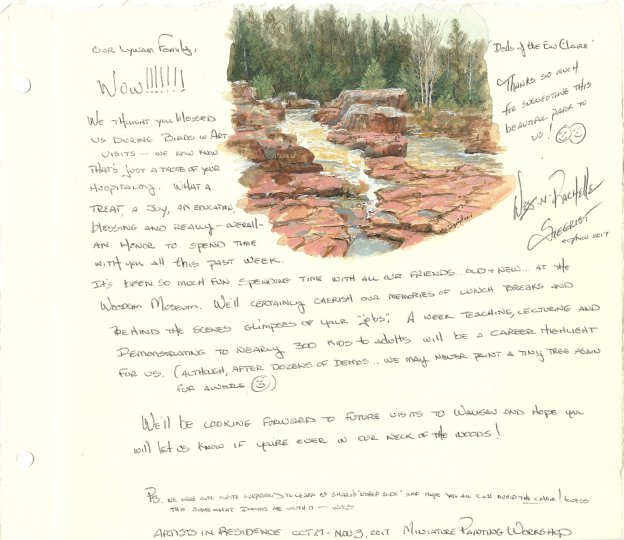 Our LYWAM Family,
WOW!!!!!!!
We thought you blessed
us during Birds in Art
visits — we now know
that's just a taste of your
hospitality. What a
treat, a joy, an education,
blessing and really - overall -
an honor to spend time
with you all this past week.
It's been so much fun spending time with all our friends... old & new... at the
Woodson Museum. We'll certainly cherish our memories of lunch breaks and
behind the scenes glimpses of your "jobs". A week teaching, lecturing and
demonstrating to nearly 300 kids to adults will be a career highlight
for us. (Although, after dozens of demos... we may never paint a tiny tree again
for awhile ☺)
We'll be looking forward to future visits to Wausau and hope you
will let us know if you're ever in our neck of the woods!
Ps. We were also quite surprised to learn of Shari's side" and hope you all can avoid the chair!
this somewhat — Wes
Artists in Residence Oct 29 - Nov 3, 2017 Miniature Painting Workshop
"Dells of the Eau Claire"
Thanks so much
for suggesting this
beautiful park to
us! ☺☺
Wes -n- Rachelle
Siegrist
Oct/Nov 2017